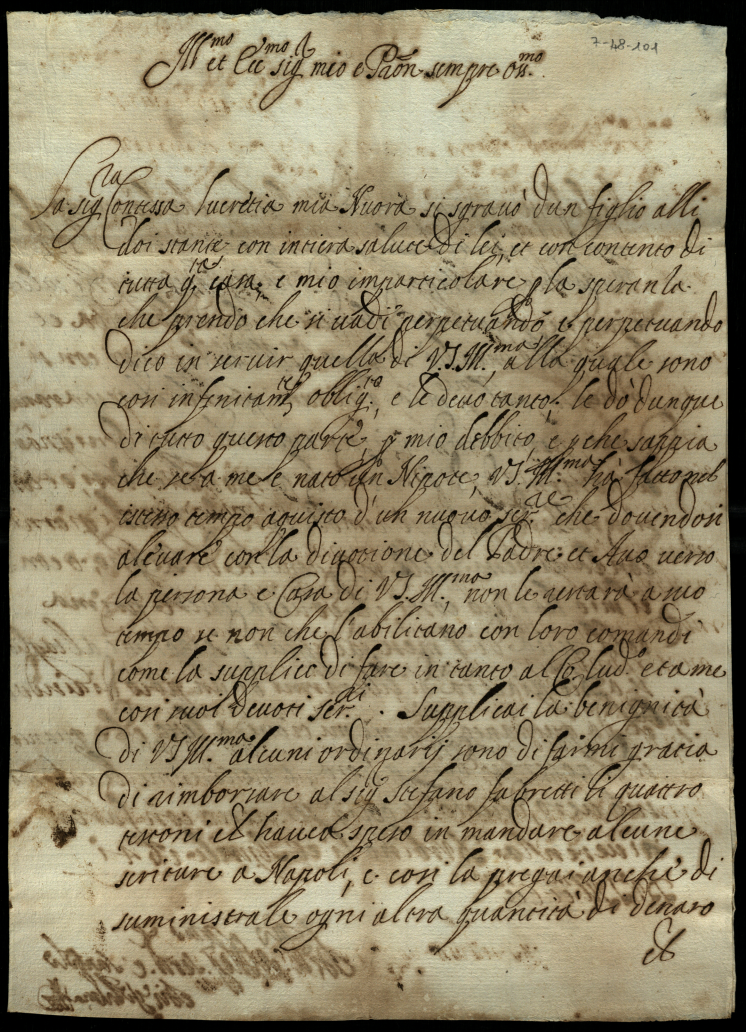 7-48-101
Ill.mo et Ecc.mo sig.r mio e Pa(d)ron sempre oss.mo
La sig.ra Contessa Lucretia mia Nuora si sgravò d'un figlio alli
doi stante con intiera salute di lei, et con contento di
tutta q.ta casa, e mio imparticolare p la speranza
che prendo che si vadi perpetuando, e perpetuando
dico in servir quella di V.S. Ill.ma, alla quale sono
così infinitam.te oblig.to, e le devo tanto. le dò dunque
di tutto questo parte, p mio debbito, e p che sappia
che se a me è nato un Nipote, V.S. Ill.ma hà fatto nel
istesso tempo aquisto d'un nuovo ser.re che dovendosi
alevare con la divotione del Padre et Avo verso
la persona e Casa di V.S. Ill.ma, non le restarà a suo
tempo se non che l'abilitano con loro comandi
come la supplico di fare in tanto al Co. Lud.o et a me
così suoi devoti ser.ri. Supplicai la benignità
di V.S. Ill.ma alcuni ordinarij sono di farmi gratia
di rimborzare al sig.r Stefano fabretti li quattro
testoni ch havea speso in mandare alcune
scriture a Napoli, e così la pregai anche di
suministrale ogni altra quantità di denaro
ch